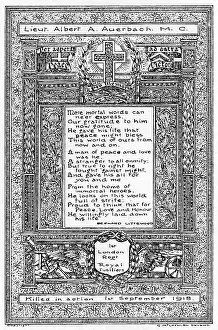 Lieut. Albert A. Auerbach. M. C.
Mere mortal words can
ne'er express,
Our gratitude to him
now gone,
He gave his life that
peace might bless
This world of ours from
now and on.
A man of peace and love
was he,
A stranger to all enmity;
But true to right he
fought against might,
And gave his all for
you and me
From the home of
immortal heroes,
He looks on this world
full of strife;
Proud to think that for
Peace, Love and Honour
He willingly laid down
his life.
1st
London
Regt
Royal
Fusiliers
Killed in action 1st September 1918.